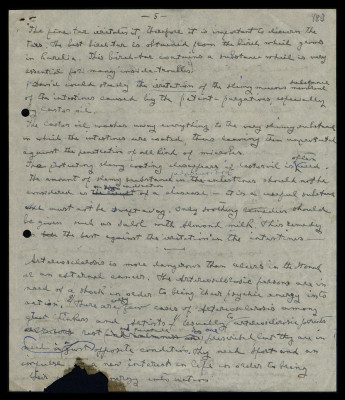 — 8 —
The pine tar irritates it, therefore it is important to discern the
tars. The best birch tar is obtained from the birch which grows
in Carelia. This birch-tar contains a substance which is very
essential for many inside troubles.
I David could study the irritation of the slimy mucous substance
of the intestines caused by the patent-purgatives especially
by Castor oil.
The Castor oil washes away everything to the very slimy substance
in which the intestines are coated, thus leaving them unprotected
against the penetration of all kind of microbes.
The protecting slimy coating disappears, if castor oil is often used
the amount of slimy substance in the intestines should not be
considered as an indication of a disease — it is a useful substance
and must not be destroyed. Only soothing remedies should
be given such as Salol with Almond milk. This remedy
is the best against the irritation in the intestines.
Arteriosclerosis is more dangerous than ulcers in the stomach
or an external cancer. The Arteriosclerotic persons are in
need of a shock in order to bring their psychic energy into
action. There are many cases of Arteriosclerosis among
great thinkers and artists. Usually to arteriosclerosis
rest is prescribed, but they are in
just opposite condition, they need sport and an
new interest in life in order to bring
energy into action